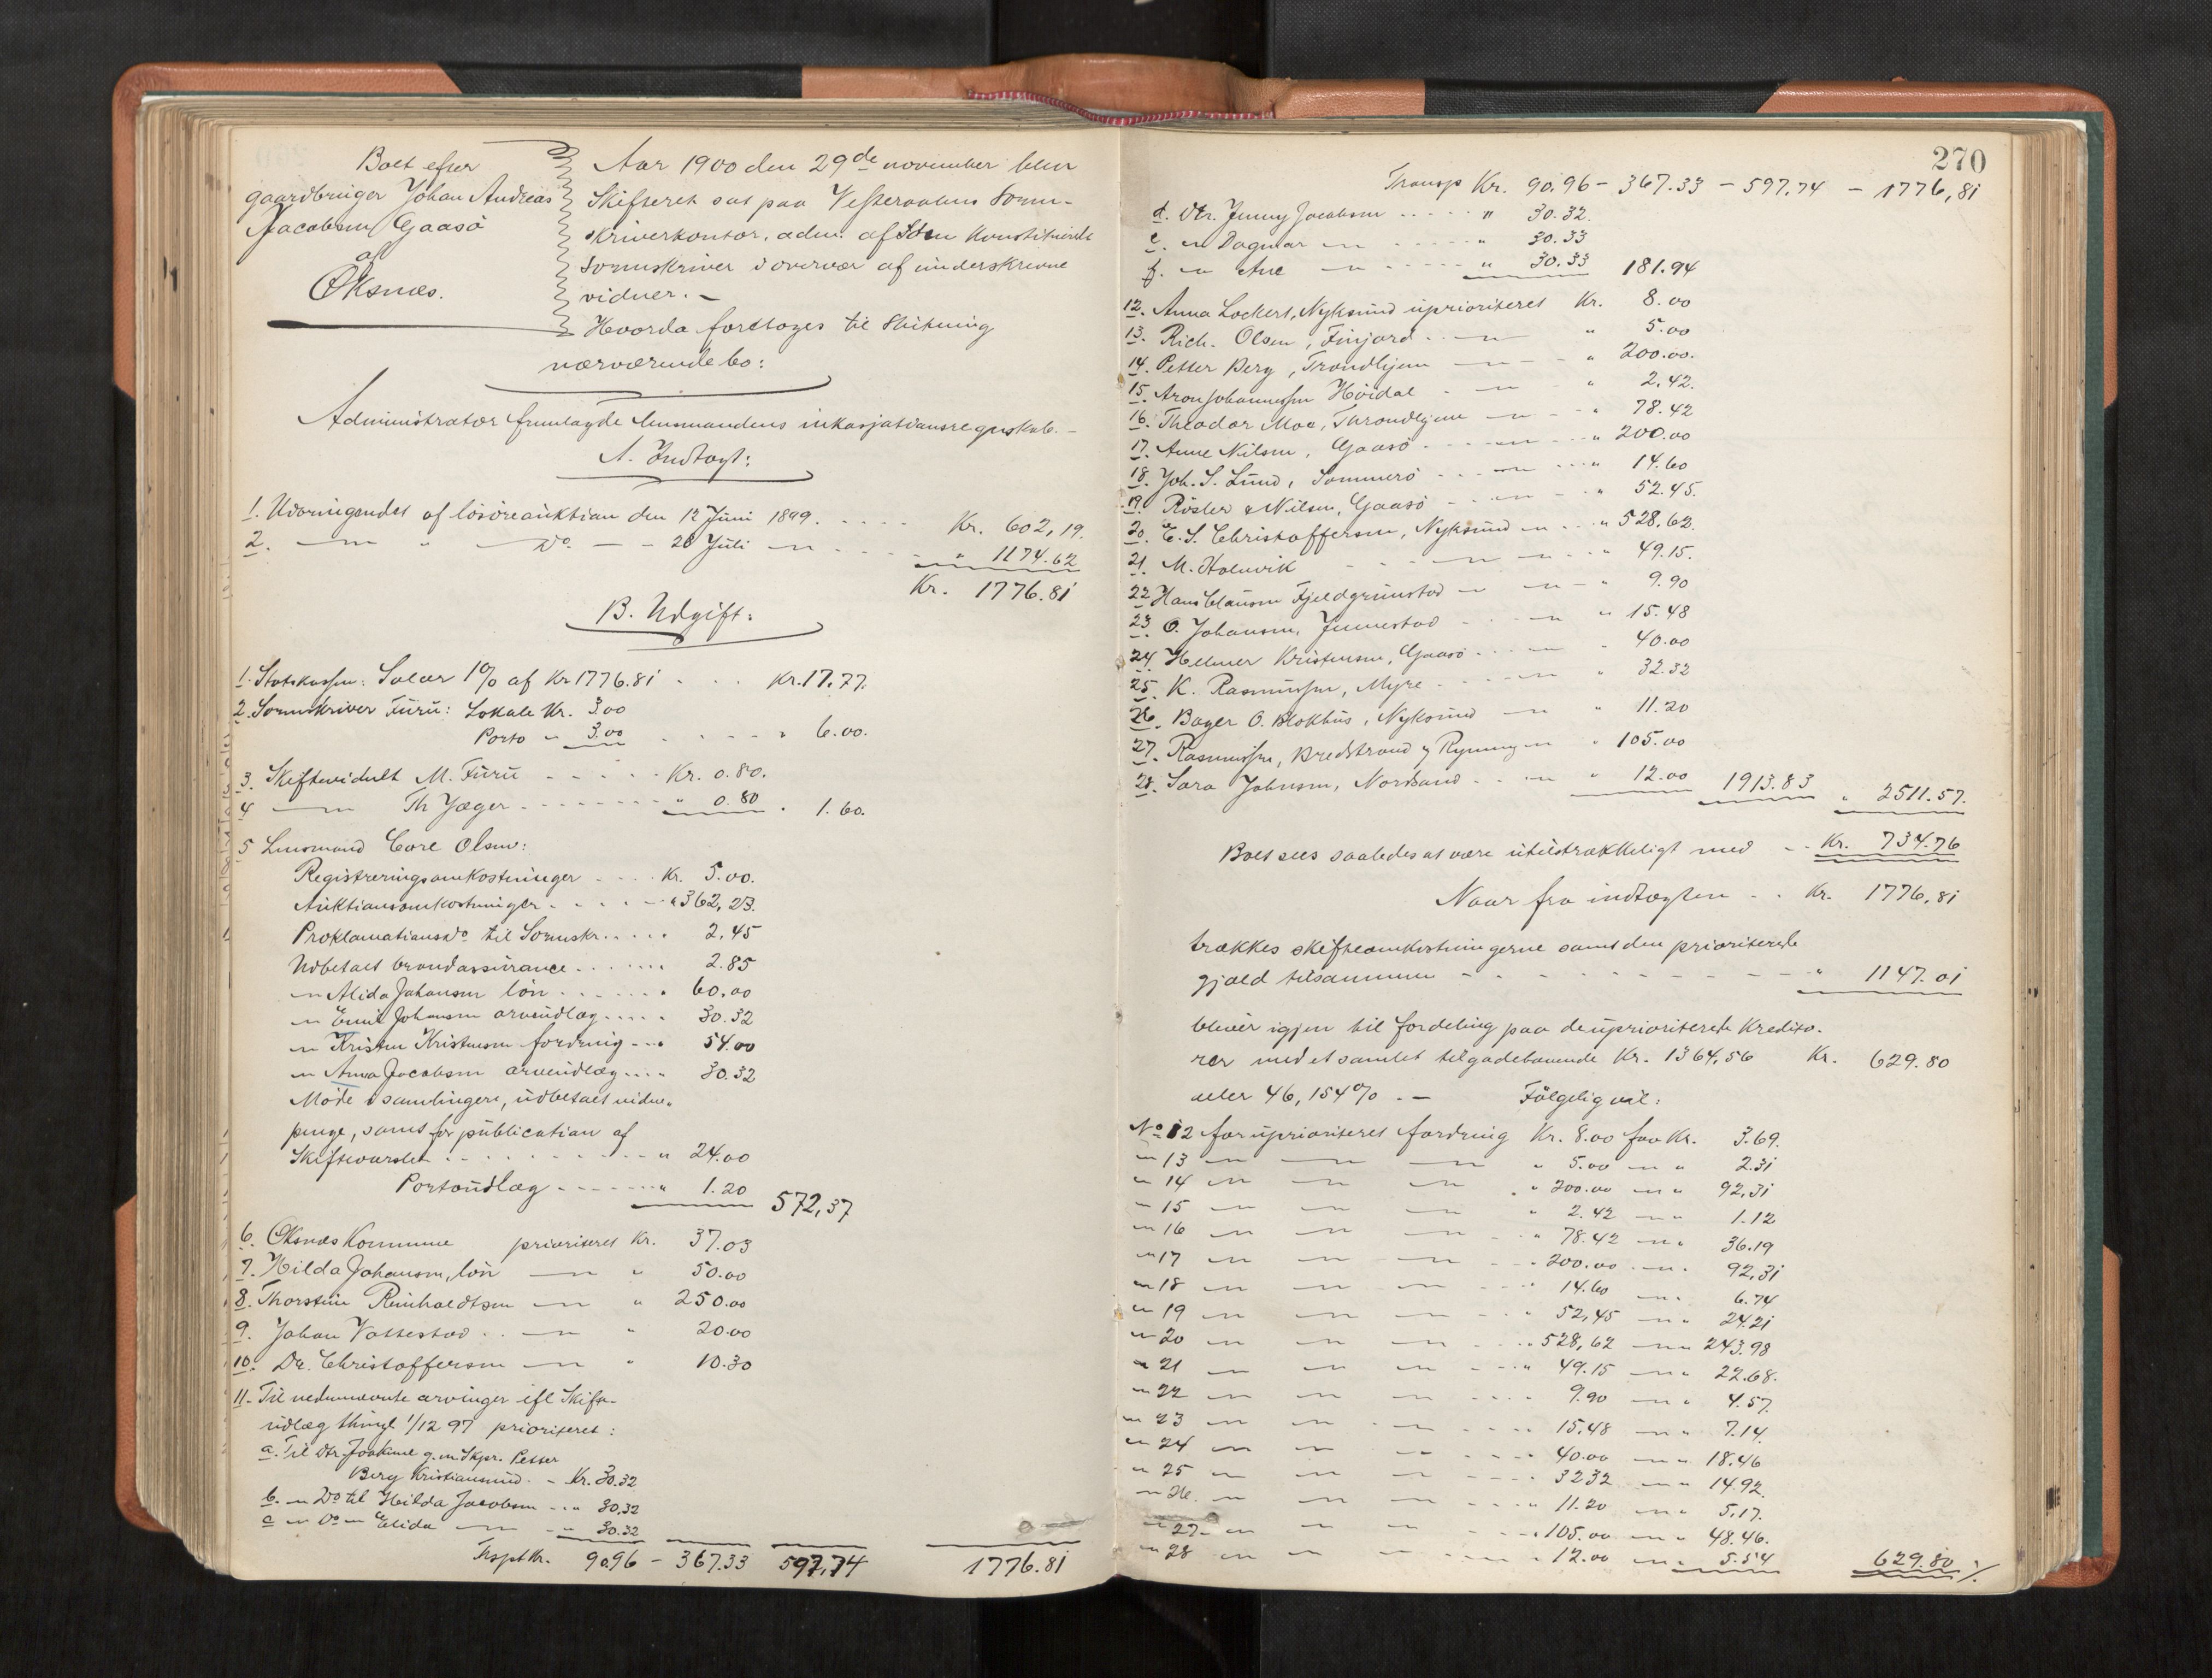 Boet efter
gaardbruger Johan Andreas
Jacobsen Gaasø
af
Øksnes.
Aar 1900 den 29de november blev
Skifteret sat paa Vesteraalens Soren-
skriverkontor, adm. af den konstituerede
sorenskriver i overvær af underskrevne
vidner. –
Hvorda foretoges til slutning
nærværende bo:
Administrator fremlagde lensmandens inkasjationsregnskab. –
A. Indtægt:
1. Udbringendet af løsøreauktion den 12 Juni 1899. . . . . Kr. 602,19.
2. — " — Do. — - 20 Juli — . . . . " 1174.62
Kr. 1776.81
B. Udgift:
1. Statskassen: Salær 1% af Kr 1776.81 . . . Kr. 17.77.
2. Sorenskriver Furu: Lokale Kr. 3.00
Porto " 3.00 . . . . " 6.00.
3. Skiftevidnet M. Furu - - - - - Kr. 0.80.
4 — Th Jæger - - - - - - - " 0.80 . 1.60.
5 Lensmand Core Olsen:
Registreringsomkostninger . . . . Kr. 5.00.
Auktionsomkostninger . . . . . " 362,23.
Proklamationsdo til Sorenskr. . . . . 2.45
Udbetalt brandassurance . . . . . . . 2.85
— Alida Johansen løn . . . . . . . 60.00
— Emil Johansen arveudlæg . . . . . 30.32
— Kristen Kristensen fordring - . . 54.00
— Anna Jacobsen arveudlæg . . . . 30.32
Møde i samlinger, udbetalt vidne-
penge, samt for publication af
Skifteudlæg . . . . . . . . . " 24.00
Portoudlæg - - - - - - " 1.20 572,37
6. Øksnes Kommune prioriteret Kr. 37.03
7. Hilda Johansen, løn — " 50.00
8. Thorstein Reinholdtsen — " 250.00
9. Johan Vottestad . . — " 20.00
10. Dr. Christoffersen — " 10.30
11. Til nedennævnte arvinger ifl Skifte-
udlæg thingl. 1/12 97 prioriteret:
a. Til Dtr. Joakime g.m. Skpr. Petter
Berg Kristiansund . - Kr. 30.32
b. — Do til Hilda Jacobsen - . . " 30.32
c — Do — Elida — - " 30.32
Trspt Kr. 90.96 - 367.33 597,74 1776.81
270
Transp Kr. 90.96 - 367.33 - 597.74 - 1776,81
d. Dtr. Jenny Jacobsen . . . . . " 30.32.
e. — Dagmar — - . . . . . " 30.33
f. — Ane — - . . . . . " 30.33 181.94
12. Anna Lockert, Nyksund uprioriteret Kr. 8.00
13. Rich. Olsen, Finjord . . — " 5.00
14. Petter Berg, Trondhjem — - - " 200.00.
15. Aron Johannessen Høidal - — - " 2.42.
16. Theodor Moe, Throndhjem — - - " 78.42
17. Anne Nilsen, Gaasø . . . . — . . . " 200.00
18. Joh. S. Lund, Sommerø - . . — . . . " 14.60
19. Røsler & Nilsen, Gaasø - - . — - . 52.45.
20. E. S. Christoffersen, Nyksund — . . . " 528,62.
21. M. Holmvik - - . — — . . " 49.15.
22 Hans Clausen Fjeldgrimstad — — - " 9.90
23. O. Johansen, Jennestad - . . . — " 15.48
24. Helmer Kristensen, Gaasø . . . . — " 40.00
25. K. Rasmussen, Myre - . . . . — " 32.32
26. Bager O. Blokhus, Nyksund — " 11.20
27. Rasmussen, Bredstrand & Rynning — " 105.00
28. Sara Johnsen, Nordsand . . . — " 12.00 1913.83 " 2511.57.
Boet sees saaledes at være utilstrækkeligt med - . Kr. 734.76
Naar fra indtægten . . Kr. 1776,81
trækkes skifteomkostningerne samt den prioriterede
gjæld tilsammen - - - - - - - - - - " 1147.01
bliver igjen til fordeling paa de uprioriterede kredito-
rer med et samlet tilgodehavende Kr. 1364,56 Kr. 629.80
eller 46,154%. — Følgelig vil:
No 12 for uprioriteret fordring Kr. 8.00 faa Kr. 3.69.
— 13 — — — " 5.00 — " 2.31
" 14 — — — . " 200.00 — " 92,31
— 15 — — — " 2.42 — " 1.12
— 16 — — — - . " 78.42 — " 36.19
— 17 — — — - . . 200.00 . — . 92,31
— 18 — — — . . . " 14.60 — " 6.74
— 19 — — — - - . " 52,45 — " 24.21
— 20 — — — . . . . 528,62 — " 243.98
— 21 — — — - - - " 49.15 — " 22.68.
— 22 — — — . . . . 9.90 — " 4.57.
— 23 — — — . . . . 15.48 — " 7.14.
— 24 — — — . . . . 40.00 — " 18.46
— 25 — — — - - - . 32.32 — " 14.92.
— 26. — — — . . . " 11.20 — " 5.17.
— 27 — — — - . . 105.00 — " 48.46.
— 28 — — — . — . . . " 12.00 — " 5.54 629.80 %